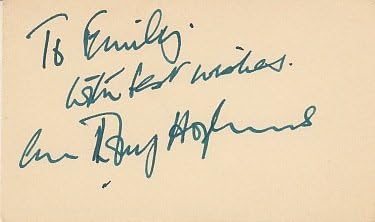 To Emily.
with best wishes.
Hopkins